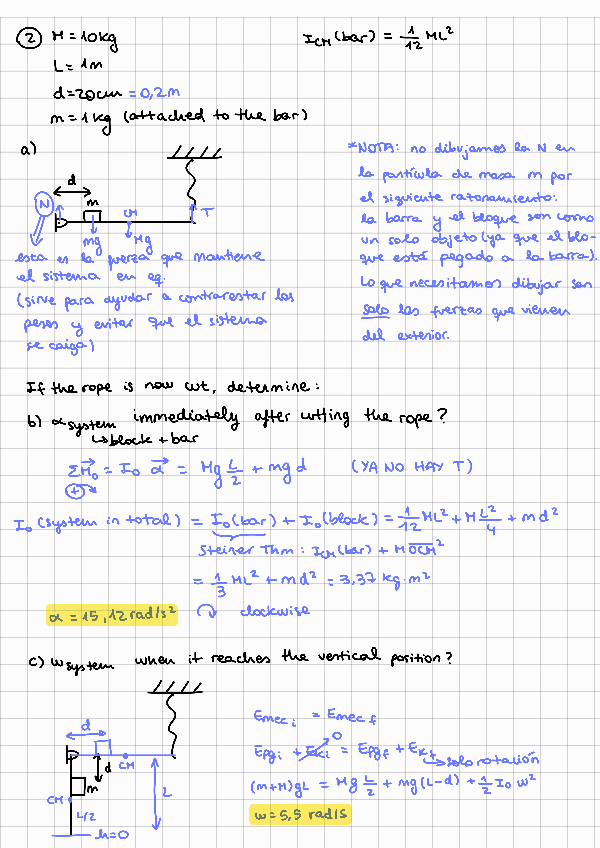 ② M = 10 kg
I_CM (bar) = 1/12 ML²
L = 1m
d = 20cm = 0,2m
m = 1 kg (attached to the bar)
a)
d
N
m
CM
T
mg
Mg
esta es la fuerza que mantiene
el sistema en eq.
(sirve para ayudar a contrarestar los
pesos y evitar que el sistema
se caiga)
*NOTA: no dibujamos la N en
la partícula de masa m por
el siguiente razonamiento:
la barra y el bloque son como
un solo objeto (ya que el blo-
que está pegado a la barra).
Lo que necesitamos dibujar son
solo las fuerzas que vienen
del exterior.
If the rope is now cut, determine:
b) α_system immediately after cutting the rope?
↳ block + bar
ΣM⃗₀ = I₀ α⃗ = Mg L/2 + mg d (YA NO HAY T)
+
I₀ (system in total) = I₀ (bar) + I₀ (block) = 1/12 ML² + M L²/4 + md²
Steiner Thm: I_CM (bar) + M OCM²
= 1/3 ML² + md² = 3,37 kg·m²
α = 15,12 rad/s² clockwise
c) ω_system when it reaches the vertical position?
d
CM
d
m
CM
L
L/2
h=0
Emec i = Emec f
Epg i + Ek i = Epg f + Ek f
0
↳ solo rotación
(m+M)gL = Mg L/2 + mg(L-d) + 1/2 I₀ ω²
ω = 5,5 rad/s